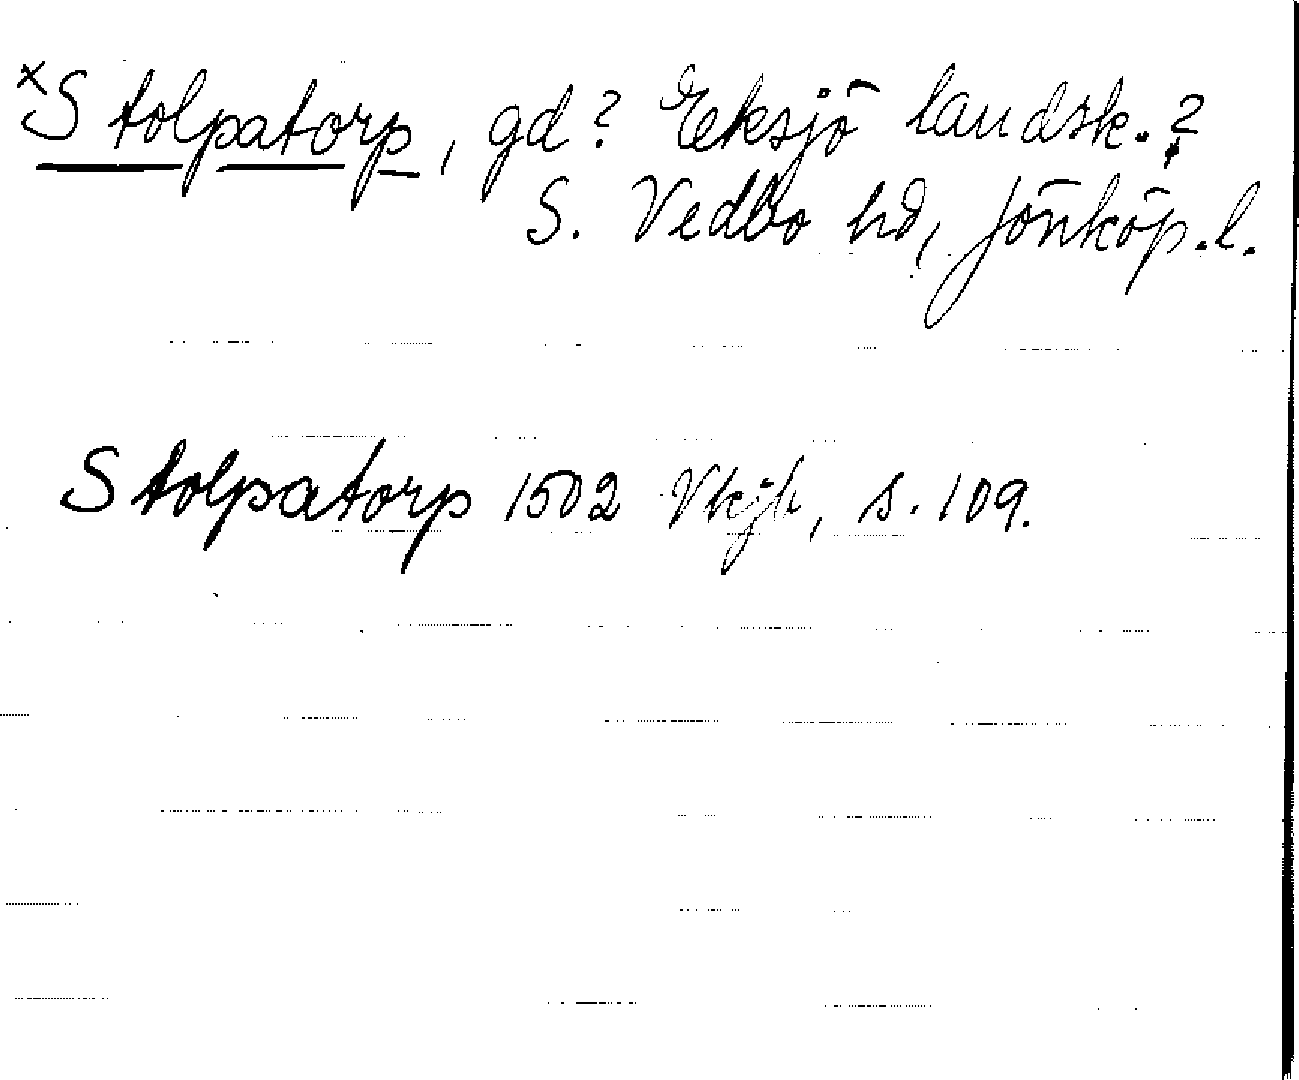 ×Stolpatorp, gd? Eksjö landsk.?
S. Vedbo hd, Jönköp.l.
Stolpatorp 1502 Vkjb, s. 109.